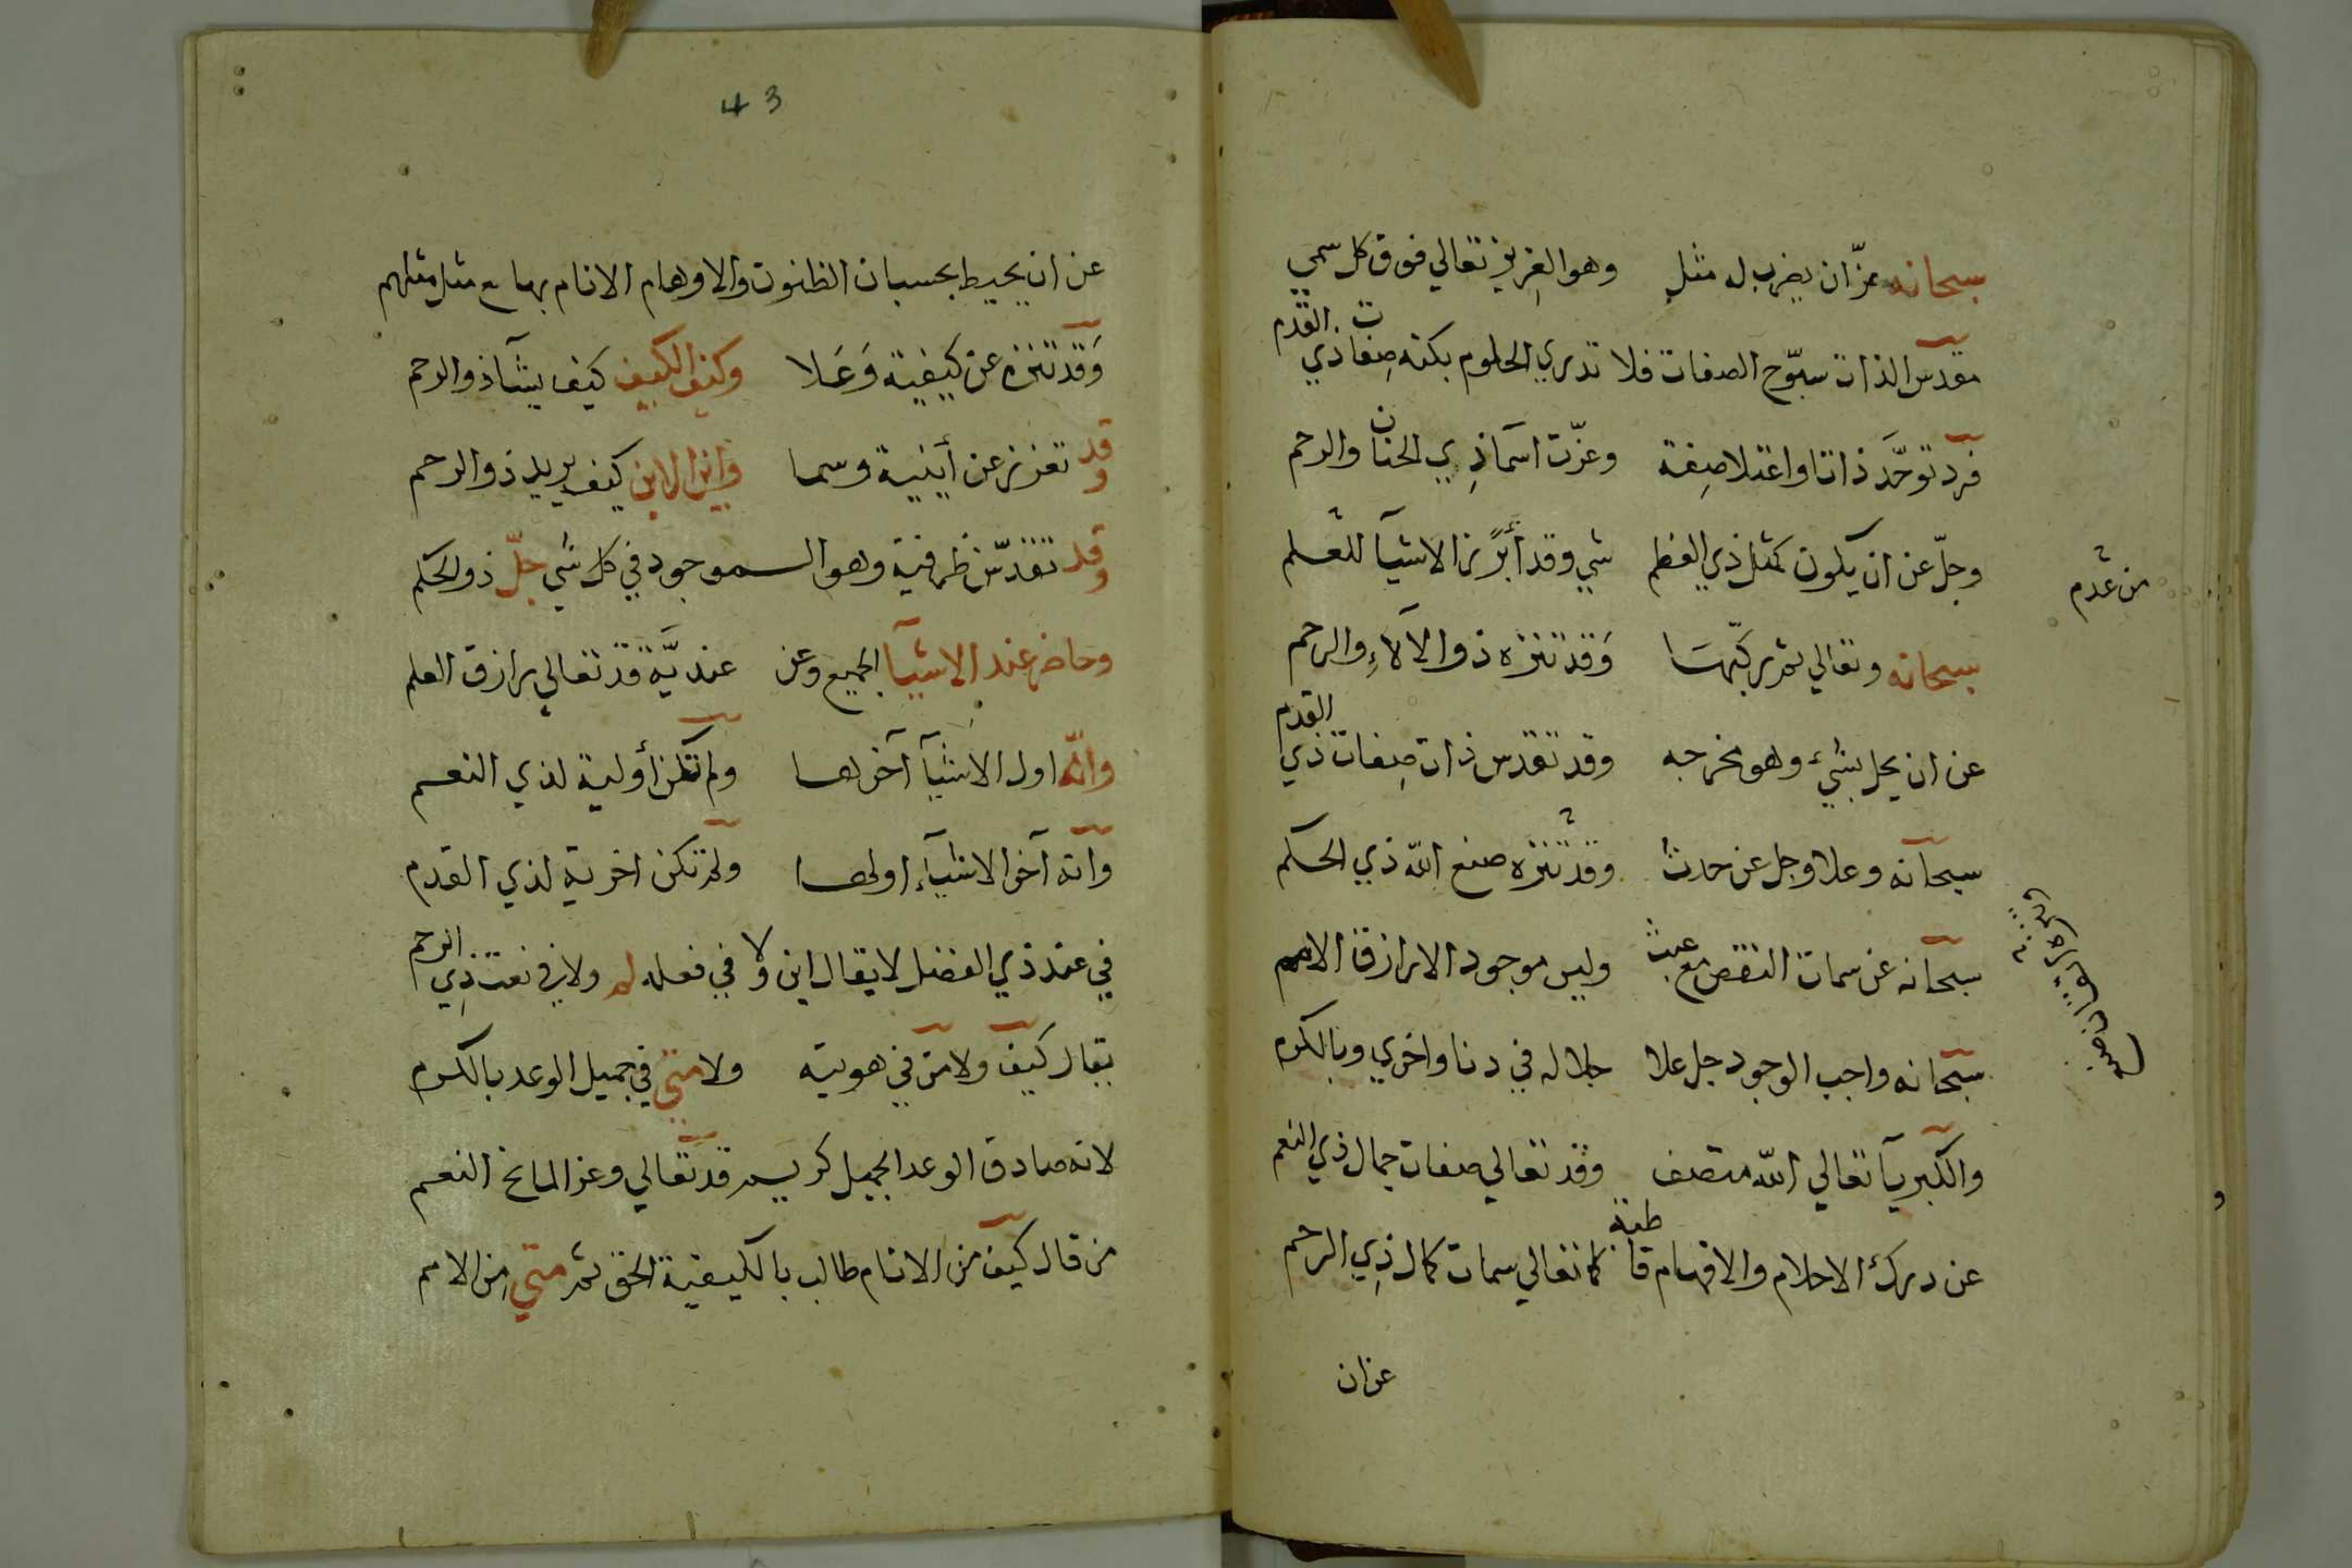 سبحانه عزّ ان يضرب له مثل وهو العزيز تعالي فوق كل سمي
مقدس الذات سبّوح الصفات فلا تدري الحلوم بكنه صِفات ذي القدم
فرد توحَّد ذاتا واعتلا صِفة وعزّت اسما ذِي الحنان والرحم
وجلّ عن ان يكون كمثل ذي العظم شي وقد أبرز الاشيآ للعلم
من عدم
سبحانه وتعالي ثم ركّبها وَقد تنزه ذو الآلاءِ والرحم
عن ان يحل بشيء وهو مخرجه وقد تقدس ذات صِفات ذي القدم
سبحانه وعلا وجل عن حدث وقد تنزه صنع الله ذي الحكم
سبحانه عن سمات النقص مع عبث وليس موجود الا رازق الامم
سبحانه واجب الوجود جل علا جلاله في دنا واخري وبالكرم
والكبريآ تعالي الله متصف وقد تعالي صفات جمال ذي النعم
عن درك الاحلام والافهام قاطبة كما تعالي سمات كمال ذِي الرحم
عن ان
43
عن ان يحيط بحسبان الظنون والاوهام الانام بها مع مثل مثلهم
وَقد تنزه عن كيفية وَعَلا وكيف الكيف كيف يشآ ذو الرحم
وقد تعزز عن أينية وسما واين الاين كيف يريد ذو الرحم
وقد تقدّس ظرفية وهو الموجود في كل شي جلّ ذو الحكم
وحاضر عند الاشيآ الجميع وعن عنديَّة قد تعالي رازق العلم
وانّه اول الاشيآ آخرها ولم تكن أولية لذي النعم
وانه آخر الاشيآء اولها ولم تكن اخرية لذي القدم
في عند ذي الفضل لا يقال اين ولا في فعله لم ولا في نعت ذِي الرحم
يقال كيف ولا من في هويته ولا متي في جميل الوعد بالكرم
لانه صادق الوعد الجميل كريم قد تعالي وعز المانح النعم
من قال كيف من الانام طالب بالكيفية الحق ثم متي مِن الامم